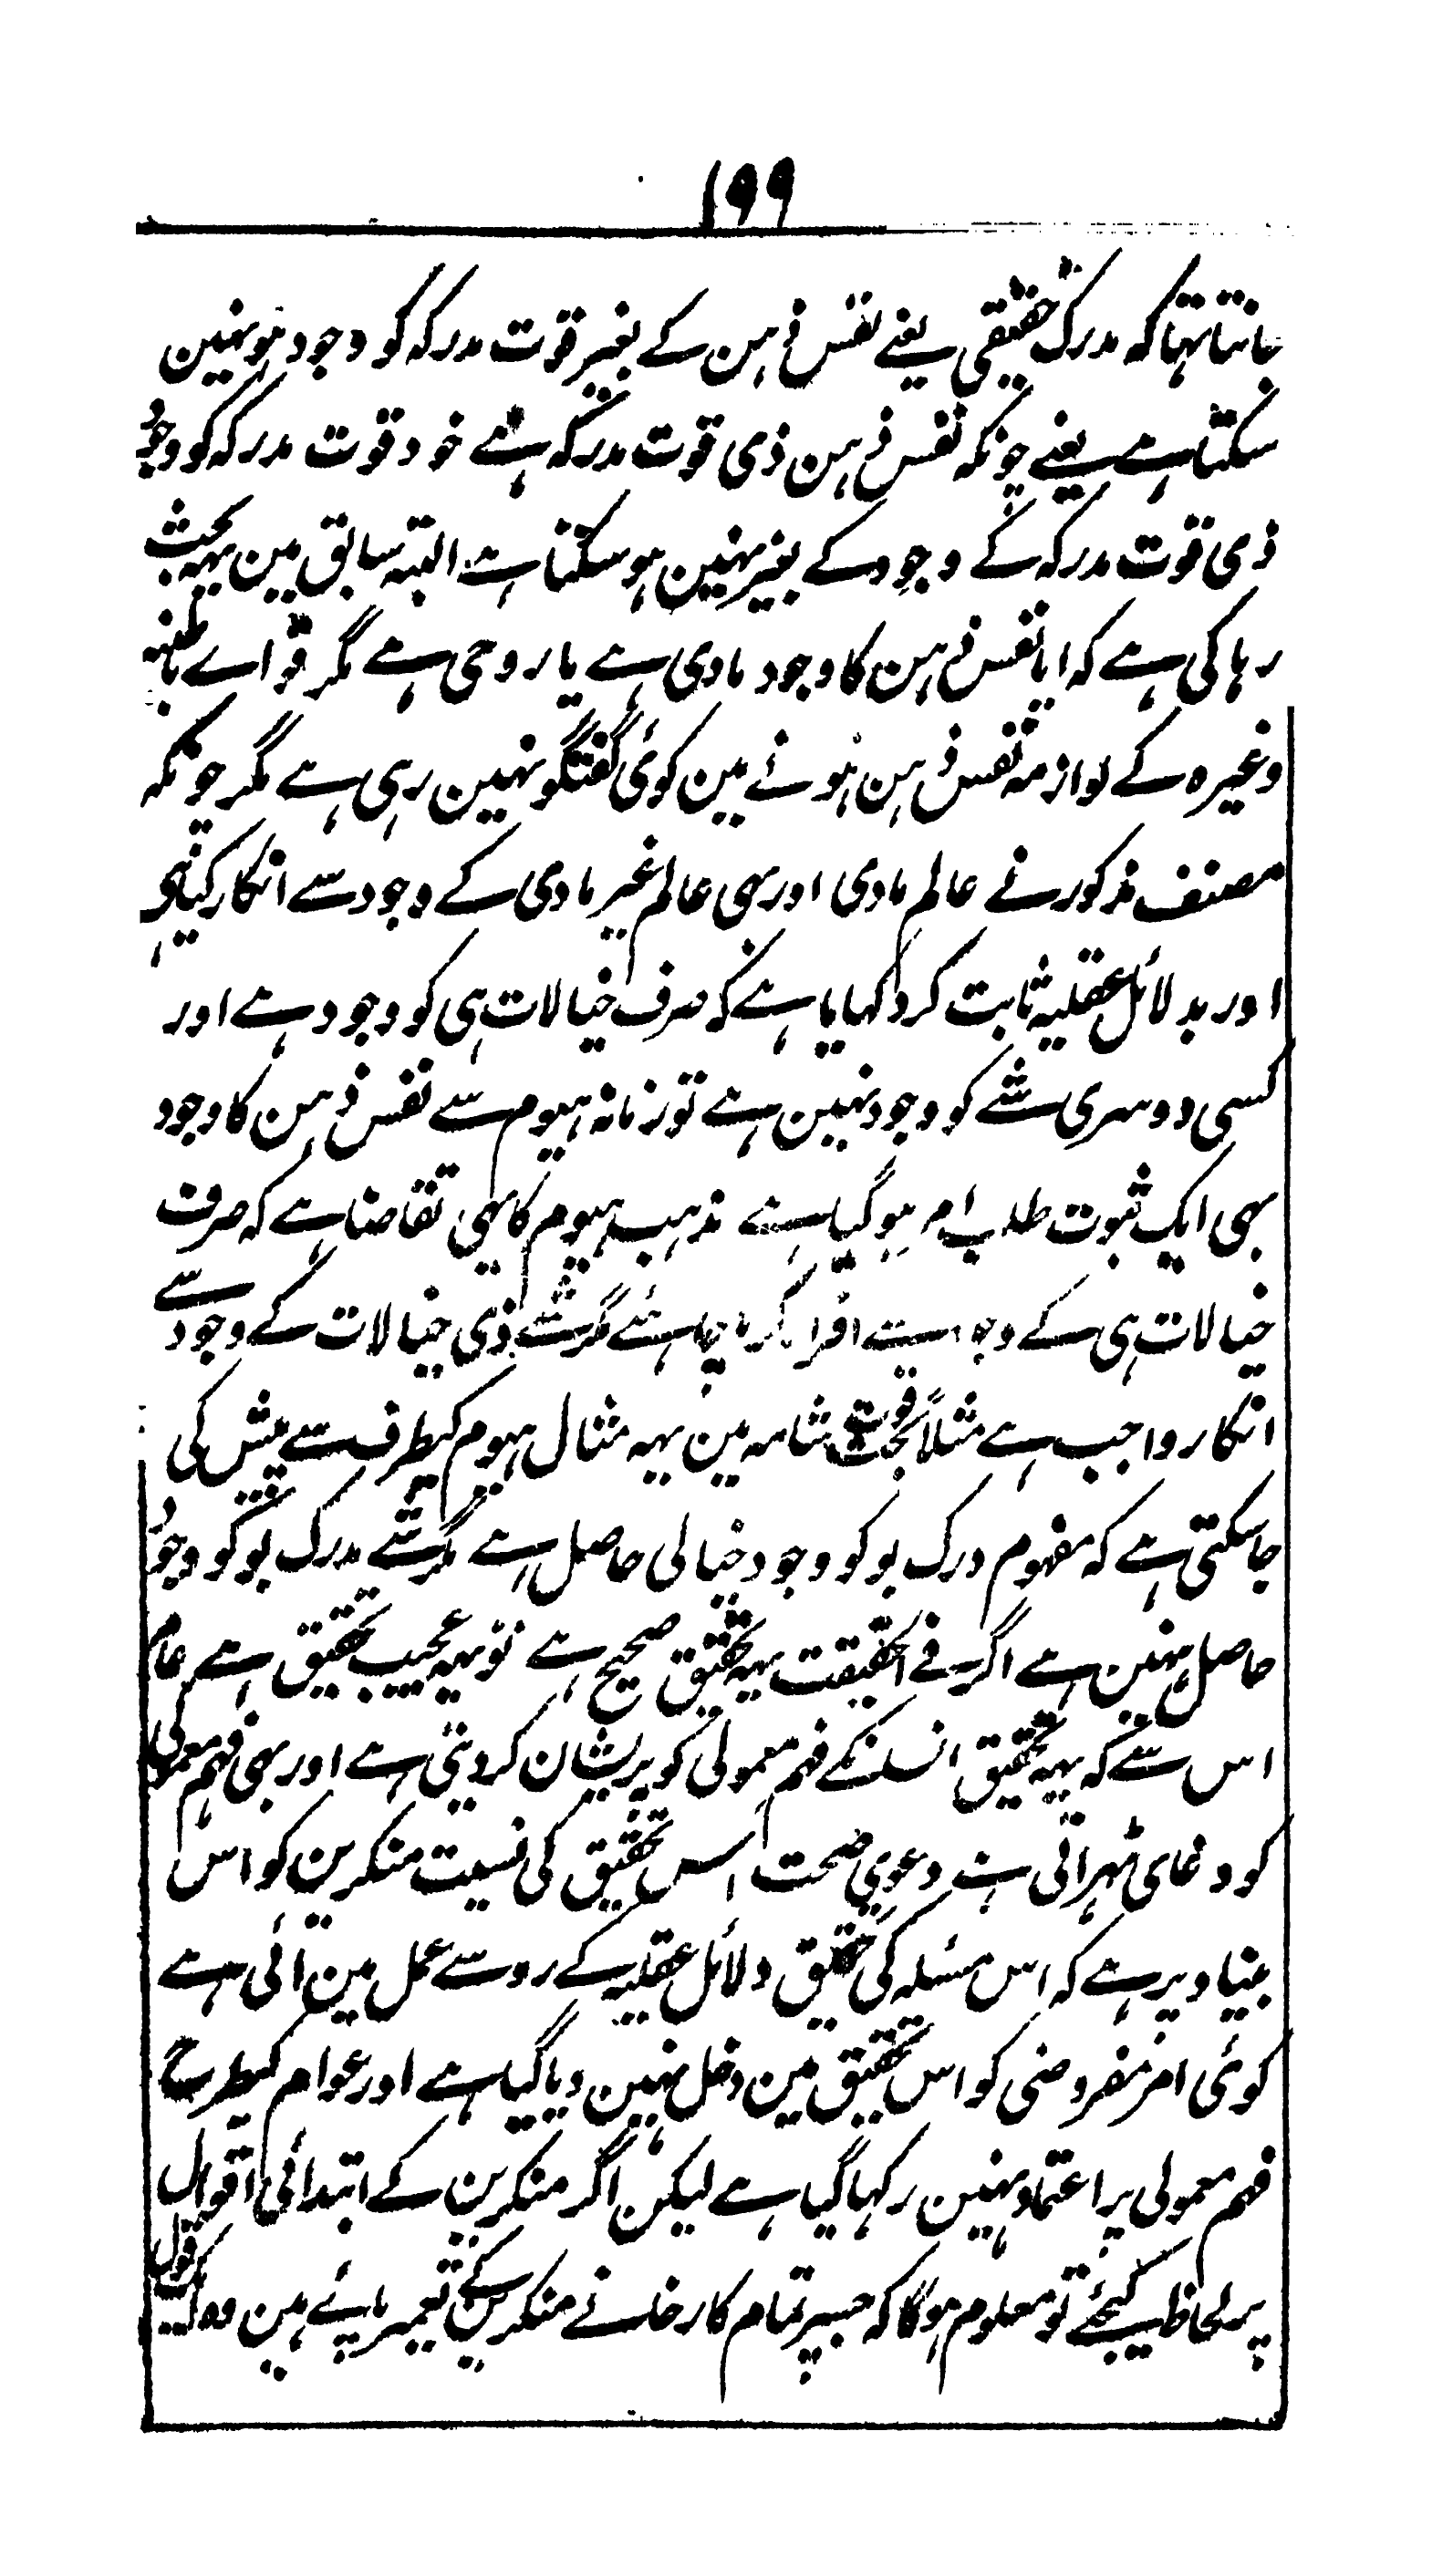 ۱۹۹
جانتا تہا کہ مدرک حقیقی یعنے نفس ذہن کے بغیر قوت مدرکہ کو وجود ہو نہین
سکتا ہے یعنے چونکہ نفس ذہن ذی قوت مدرکہ ہے خود قوت مدرکہ کو وجود
ذی قوت مدرکہ کے وجود کے بغیر نہین ہو سکتا ہے البتہ سابق مین یہہ بحث
رہا کی ہے کہ ایا نفس ذہن کا وجود مادی ہے یا روحی ہے مگر قواے باطنہ
وغیرہ کے لوازمہ نفس ذہن ہونے مین کوئی گفتگو نہین رہی ہے مگر چونکہ
مصنف مذکور نے عالم مادی اور بہی عالم غیر مادی کے وجود سے انکار کیا ہے
اور بدلائل عقلیہ ثابت کر دکہایا ہے کہ صرف خیالات ہی کو وجود ہے اور
کسی دوسری شے کو وجود نہین ہے تو زمانہ ہیوم سے نفس ذہن کا وجود
بہی ایک ثبوت طلب امر ہو گیا ہے مذہب ہیوم کا یہی تقاضا ہے کہ صرف
خیالات ہی کے وجود سے اقرار کرنا چاہئے مگر شے ذی خیالات کے وجود سے
انکار واجب ہے مثلاً بحث قوت شامہ مین یہہ مثال ہیوم کیطرف سے پیش کی
جا سکتی ہے کہ مفہوم درک بو کو وجود خیالی حاصل ہے مگر شے مدرک بو کو وجود
حاصل نہین ہے اگر فے الحقیقت یہہ تحقیق صحیح ہے تو یہہ عجیب تحقیق ہے عام
اس سے کہ یہہ تحقیق انسانکے فہم معمولی کو پریشان کر دیتی ہے اور بہی فہم معمولی
کو دغای ٹہراتی ہے دعوی صحت اس تحقیق کی نسبت منکرین کو اس
بنیاد پر ہے کہ اس مسئلہ کی تحقیق دلائل عقلیہ کے رو سے عمل مین آئی ہے
کوئی امر مفروضی کو اس تحقیق مین دخل نہین دیا گیا ہے اور عوام کیطرح
فہم معمولی پر اعتماد نہین رکہا گیا ہے لیکن اگر منکرین کے ابتدائی اقوال
پر لحاظ کیجئے تو معلوم ہوگا کہ جسپر تمام کارخانے منکرین کے تعمیر پائے ہین وہ ایک قول